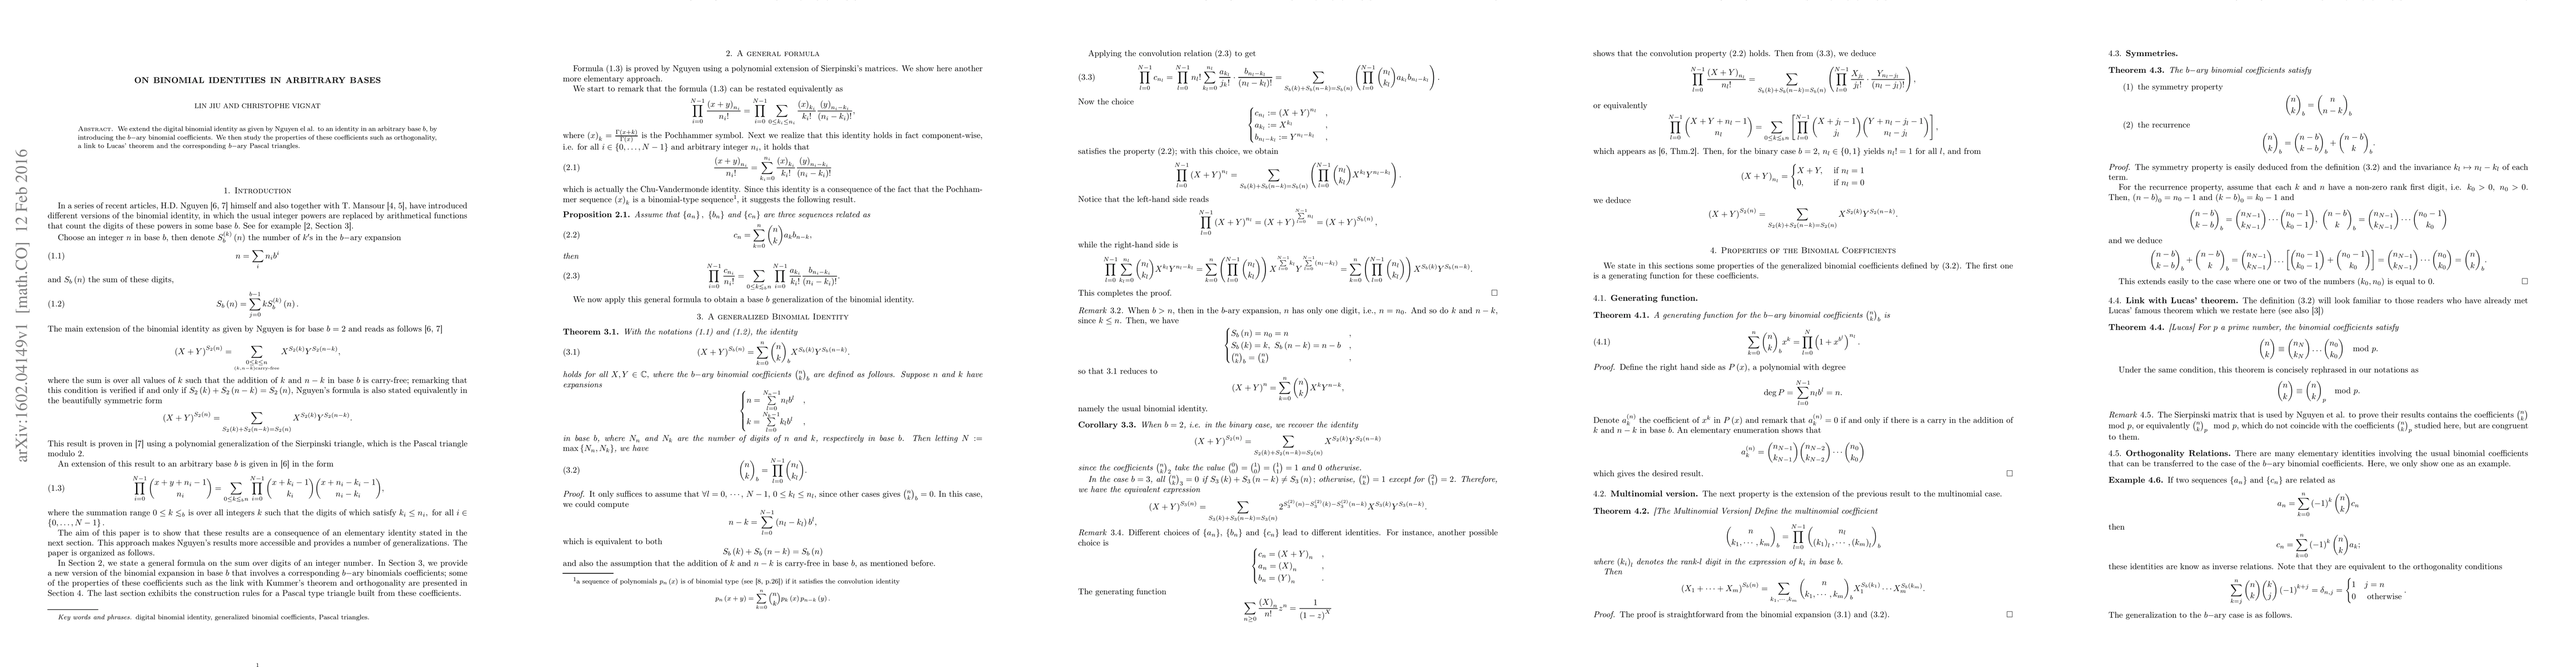 arXiv:1602.04149v1 [math.CO] 12 Feb 2016
ON BINOMIAL IDENTITIES IN ARBITRARY BASES
LIN JIU AND CHRISTOPHE VIGNAT
Abstract. We extend the digital binomial identity as given by Nguyen et al. to an identity in an arbitrary base b, by
introducing the b−ary binomial coefficients. We then study the properties of these coefficients such as orthogonality,
a link to Lucas' theorem and the corresponding b−ary Pascal triangles.
1. Introduction
In a series of recent articles, H.D. Nguyen [6, 7] himself and also together with T. Mansour [4, 5], have introduced
different versions of the binomial identity, in which the usual integer powers are replaced by arithmetical functions
that count the digits of these powers in some base b. See for example [2, Section 3].
Choose an integer n in base b, then denote S_b^{(k)} (n) the number of k's in the b−ary expansion
(1.1) n = \sum_i n_i b^i
and S_b (n) the sum of these digits,
(1.2) S_b (n) = \sum_{j=0}^{b-1} k S_b^{(k)} (n) .
The main extension of the binomial identity as given by Nguyen is for base b = 2 and reads as follows [6, 7]
(X + Y)^{S_2(n)} = \sum_{0≤k≤n, (k,n−k) carry-free} X^{S_2(k)} Y^{S_2(n−k)},
where the sum is over all values of k such that the addition of k and n − k in base b is carry-free; remarking that
this condition is verified if and only if S_2 (k) + S_2 (n − k) = S_2 (n), Nguyen's formula is also stated equivalently in
the beautifully symmetric form
(X + Y)^{S_2(n)} = \sum_{S_2(k)+S_2(n−k)=S_2(n)} X^{S_2(k)} Y^{S_2(n−k)}.
This result is proven in [7] using a polynomial generalization of the Sierpinski triangle, which is the Pascal triangle
modulo 2.
An extension of this result to an arbitrary base b is given in [6] in the form
(1.3) \prod_{i=0}^{N-1} \binom{x + y + n_i − 1}{n_i} = \sum_{0≤k≤_b n} \prod_{i=0}^{N-1} \binom{x + k_i − 1}{k_i} \binom{x + n_i − k_i − 1}{n_i − k_i},
where the summation range 0 ≤ k ≲_b is over all integers k such that the digits of which satisfy k_i ≤ n_i, for all i ∈
{0, . . . , N − 1} .
The aim of this paper is to show that these results are a consequence of an elementary identity stated in the
next section. This approach makes Nguyen's results more accessible and provides a number of generalizations. The
paper is organized as follows.
In Section 2, we state a general formula on the sum over digits of an integer number. In Section 3, we provide
a new version of the binomial expansion in base b that involves a corresponding b−ary binomials coefficients; some
of the properties of these coefficients such as the link with Kummer's theorem and orthogonality are presented in
Section 4. The last section exhibits the construction rules for a Pascal type triangle built from these coefficients.
Key words and phrases. digital binomial identity, generalized binomial coefficients, Pascal triangles.
1
2. A general formula
Formula (1.3) is proved by Nguyen using a polynomial extension of Sierpinski's matrices. We show here another
more elementary approach.
We start to remark that the formula (1.3) can be restated equivalently as
\prod_{i=0}^{N-1} \frac{(x + y)_{n_i}}{n_i!} = \prod_{i=0}^{N-1} \sum_{0≤k_i≤n_i} \frac{(x)_{k_i}}{k_i!} \frac{(y)_{n_i−k_i}}{(n_i − k_i)!},
where (x)_k = \frac{Γ(x+k)}{Γ(x)} is the Pochhammer symbol. Next we realize that this identity holds in fact component-wise,
i.e. for all i ∈ {0, . . . , N − 1} and arbitrary integer n_i, it holds that
(2.1) \frac{(x + y)_{n_i}}{n_i!} = \sum_{k_i=0}^{n_i} \frac{(x)_{k_i}}{k_i!} \frac{(y)_{n_i−k_i}}{(n_i − k_i)!}
which is actually the Chu-Vandermonde identity. Since this identity is a consequence of the fact that the Pochham-
mer sequence (x)_k is a binomial-type sequence^1, it suggests the following result.
Proposition 2.1. Assume that {a_n} , {b_n} and {c_n} are three sequences related as
(2.2) c_n = \sum_{k=0}^{n} \binom{n}{k} a_k b_{n−k},
then
(2.3) \prod_{i=0}^{N-1} \frac{c_{n_i}}{n_i!} = \sum_{0≤k≤_b n} \prod_{i=0}^{N-1} \frac{a_{k_i}}{k_i!} \frac{b_{n_i−k_i}}{(n_i − k_i)!}.
We now apply this general formula to obtain a base b generalization of the binomial identity.
3. A generalized Binomial Identity
Theorem 3.1. With the notations (1.1) and (1.2), the identity
(3.1) (X + Y)^{S_b(n)} = \sum_{k=0}^{n} \binom{n}{k}_b X^{S_b(k)} Y^{S_b(n−k)}.
holds for all X, Y ∈ ℂ, where the b−ary binomial coefficients \binom{n}{k}_b are defined as follows. Suppose n and k have
expansions
{ n = \sum_{l=0}^{N_n−1} n_l b^l ,
k = \sum_{l=0}^{N_k−1} k_l b^l ,
in base b, where N_n and N_k are the number of digits of n and k, respectively in base b. Then letting N :=
max {N_n, N_k}, we have
(3.2) \binom{n}{k}_b = \prod_{l=0}^{N-1} \binom{n_l}{k_l}.
Proof. It only suffices to assume that ∀l = 0, · · · , N − 1, 0 ≤ k_l ≤ n_l, since other cases gives \binom{n}{k}_b = 0. In this case,
we could compute
n − k = \sum_{l=0}^{N-1} (n_l − k_l) b^l,
which is equivalent to both
S_b (k) + S_b (n − k) = S_b (n)
and also the assumption that the addition of k and n − k is carry-free in base b, as mentioned before.
^1 a sequence of polynomials p_n (x) is of binomial type (see [8, p.26]) if it satisfies the convolution identity
p_n (x + y) = \sum_{k=0}^{n} \binom{n}{k} p_k (x) p_{n−k} (y) .
Applying the convolution relation (2.3) to get
(3.3) \prod_{l=0}^{N-1} c_{n_l} = \prod_{l=0}^{N-1} n_l! \sum_{k_l=0}^{n_l} \frac{a_{k_l}}{j_k!} · \frac{b_{n_l−k_l}}{(n_l − k_l)!} = \sum_{S_b(k)+S_b(n−k)=S_b(n)} ( \prod_{l=0}^{N-1} \binom{n_l}{k_l} a_{k_l} b_{n_l−k_l} ) .
Now the choice
{ c_{n_l} := (X + Y)^{n_l} ,
a_{k_l} := X^{k_l} ,
b_{n_l−k_l} := Y^{n_l−k_l} ,
satisfies the property (2.2); with this choice, we obtain
\prod_{l=0}^{N-1} (X + Y)^{n_l} = \sum_{S_b(k)+S_b(n−k)=S_b(n)} ( \prod_{l=0}^{N-1} \binom{n_l}{k_l} X^{k_l} Y^{n_l−k_l} ) .
Notice that the left-hand side reads
\prod_{l=0}^{N-1} (X + Y)^{n_l} = (X + Y)^{\sum_{l=0}^{N-1} n_l} = (X + Y)^{S_b(n)} ,
while the right-hand side is
\prod_{l=0}^{N-1} \sum_{k_l=0}^{n_l} \binom{n_l}{k_l} X^{k_l} Y^{n_l−k_l} = \sum_{k=0}^{n} ( \prod_{l=0}^{N-1} \binom{n_l}{k_l} ) X^{\sum_{l=0}^{N-1} k_l} Y^{\sum_{l=0}^{N-1} (n_l−k_l)} = \sum_{k=0}^{n} ( \prod_{l=0}^{N-1} \binom{n_l}{k_l} ) X^{S_b(k)} Y^{S_b(n−k)}.
This completes the proof. □
Remark 3.2. When b > n, then in the b-ary expansion, n has only one digit, i.e., n = n_0. And so do k and n − k,
since k ≤ n. Then, we have
{ S_b (n) = n_0 = n ,
S_b (k) = k, S_b (n − k) = n − b ,
\binom{n}{k}_b = \binom{n}{k} ,
so that 3.1 reduces to
(X + Y)^n = \sum_{k=0}^{n} \binom{n}{k} X^k Y^{n−k},
namely the usual binomial identity.
Corollary 3.3. When b = 2, i.e. in the binary case, we recover the identity
(X + Y)^{S_2(n)} = \sum_{S_2(k)+S_2(n−k)=S_2(n)} X^{S_2(k)} Y^{S_2(n−k)}
since the coefficients \binom{n}{k}_2 take the value \binom{0}{0} = \binom{1}{0} = \binom{1}{1} = 1 and 0 otherwise.
In the case b = 3, all \binom{n}{k}_3 = 0 if S_3 (k) + S_3 (n − k) ≠ S_3 (n); otherwise, \binom{n}{k} = 1 except for \binom{2}{1} = 2. Therefore,
we have the equivalent expression
(X + Y)^{S_3(n)} = \sum_{S_3(k)+S_3(n−k)=S_3(n)} 2^{S_3^{(2)}(n)−S_3^{(2)}(k)−S_3^{(2)}(n−k)} X^{S_3(k)} Y^{S_3(n−k)}.
Remark 3.4. Different choices of {a_n}, {b_n} and {c_n} lead to different identities. For instance, another possible
choice is
{ c_n = (X + Y)_n ,
a_n = (X)_n ,
b_n = (Y)_n ,
The generating function
\sum_{n≥0} \frac{(X)_n}{n!} z^n = \frac{1}{(1 − z)^X}
shows that the convolution property (2.2) holds. Then from (3.3), we deduce
\prod_{l=0}^{N-1} \frac{(X + Y)_{n_l}}{n_l!} = \sum_{S_b(k)+S_b(n−k)=S_b(n)} ( \prod_{l=0}^{N-1} \frac{X_{j_l}}{j_l!} · \frac{Y_{n_l−j_l}}{(n_l − j_l)!} ) ,
or equivalently
\prod_{l=0}^{N-1} \binom{X + Y + n_l − 1}{n_l} = \sum_{0≤k≤_b n} [ \prod_{l=0}^{N-1} \binom{X + j_l − 1}{j_l} \binom{Y + n_l − j_l − 1}{n_l − j_l} ] ,
which appears as [6, Thm.2]. Then, for the binary case b = 2, n_l ∈ {0, 1} yields n_l! = 1 for all l, and from
(X + Y)_{n_l} = { X + Y, if n_l = 1
0, if n_l = 0
we deduce
(X + Y)^{S_2(n)} = \sum_{S_2(k)+S_2(n−k)=S_2(n)} X^{S_2(k)} Y^{S_2(n−k)}.
4. Properties of the Binomial Coefficients
We state in this sections some properties of the generalized binomial coefficients defined by (3.2). The first one
is a generating function for these coefficients.
4.1. Generating function.
Theorem 4.1. A generating function for the b−ary binomial coefficients \binom{n}{k}_b is
(4.1) \sum_{k=0}^{n} \binom{n}{k}_b x^k = \prod_{l=0}^{N} (1 + x^{b^l})^{n_l} .
Proof. Define the right hand side as P (x), a polynomial with degree
deg P = \sum_{l=0}^{N-1} n_l b^l = n.
Denote a_k^{(n)} the coefficient of x^k in P (x) and remark that a_k^{(n)} = 0 if and only if there is a carry in the addition of
k and n − k in base b. An elementary enumeration shows that
a_k^{(n)} = \binom{n_{N−1}}{k_{N−1}} \binom{n_{N−2}}{k_{N−2}} · · · \binom{n_0}{k_0}
which gives the desired result. □
4.2. Multinomial version. The next property is the extension of the previous result to the multinomial case.
Theorem 4.2. [The Multinomial Version] Define the multinomial coefficient
\binom{n}{k_1, · · · , k_m}_b = \prod_{l=0}^{N-1} \binom{n_l}{(k_1)_l, · · · , (k_m)_l}_b
where (k_i)_l denotes the rank-l digit in the expression of k_i in base b.
Then
(X_1 + · · · + X_m)^{S_b(n)} = \sum_{k_1,··· ,k_m} \binom{n}{k_1, · · · , k_m}_b X_1^{S_b(k_1)} · · · X_m^{S_b(k_m)}.
Proof. The proof is straightforward from the binomial expansion (3.1) and (3.2). □
4.3. Symmetries.
Theorem 4.3. The b−ary binomial coefficients satisfy
(1) the symmetry property
\binom{n}{k}_b = \binom{n}{n − k}_b
(2) the recurrence
\binom{n}{k}_b = \binom{n − b}{k − b}_b + \binom{n − b}{k}_b.
Proof. The symmetry property is easily deduced from the definition (3.2) and the invariance k_l ↦ n_l − k_l of each
term.
For the recurrence property, assume that each k and n have a non-zero rank first digit, i.e. k_0 > 0, n_0 > 0.
Then, (n − b)_0 = n_0 − 1 and (k − b)_0 = k_0 − 1 and
\binom{n − b}{k − b}_b = \binom{n_{N−1}}{k_{N−1}} · · · \binom{n_0 − 1}{k_0 − 1}, \binom{n − b}{k}_b = \binom{n_{N−1}}{k_{N−1}} · · · \binom{n_0 − 1}{k_0}
and we deduce
\binom{n − b}{k − b}_b + \binom{n − b}{k}_b = \binom{n_{N−1}}{k_{N−1}} . . . [ \binom{n_0 − 1}{k_0 − 1} + \binom{n_0 − 1}{k_0} ] = \binom{n_{N−1}}{k_{N−1}} · · · \binom{n_0}{k_0} = \binom{n}{k}_b.
This extends easily to the case where one or two of the numbers (k_0, n_0) is equal to 0. □
4.4. Link with Lucas' theorem. The definition (3.2) will look familiar to those readers who have already met
Lucas' famous theorem which we restate here (see also [3])
Theorem 4.4. [Lucas] For p a prime number, the binomial coefficients satisfy
\binom{n}{k} ≡ \binom{n_N}{k_N} . . . \binom{n_0}{k_0} mod p.
Under the same condition, this theorem is concisely rephrased in our notations as
\binom{n}{k} ≡ \binom{n}{k}_p mod p.
Remark 4.5. The Sierpinski matrix that is used by Nguyen et al. to prove their results contains the coefficients \binom{n}{k}
mod p, or equivalently \binom{n}{k}_p mod p, which do not coincide with the coefficients \binom{n}{k}_p studied here, but are congruent
to them.
4.5. Orthogonality Relations. There are many elementary identities involving the usual binomial coefficients
that can be transferred to the case of the b−ary binomial coefficients. Here, we only show one as an example.
Example 4.6. If two sequences {a_n} and {c_n} are related as
a_n = \sum_{k=0}^{n} (−1)^k \binom{n}{k} c_n
then
c_n = \sum_{k=0}^{n} (−1)^k \binom{n}{k} a_k;
these identities are know as inverse relations. Note that they are equivalent to the orthogonality conditions
\sum_{k=j}^{n} \binom{n}{k} \binom{k}{j} (−1)^{k+j} = δ_{n,j} = { 1 j = n
0 otherwise .
The generalization to the b−ary case is as follows.